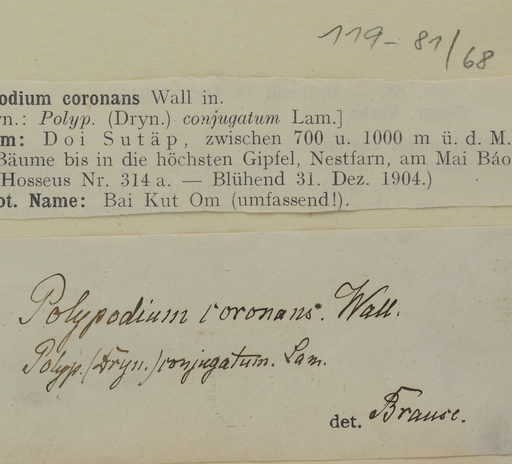 119-81/68
odium coronans Wall in.
n.: Polyp. (Dryn.) conjugatum Lam.]
m: Doi Sutäp, zwischen 700 u. 1000 m ü. d. M.
Bäume bis in die höchsten Gipfel, Nestfarn, am Mai Báo
Hosseus Nr. 314 a. — Blühend 31. Dez. 1904.)
ot. Name: Bai Kut Om (umfassend!).
Polypodium coronans. Wall.
Polyp. (Dryn.) conjugatum. Lam.
det. Brause.